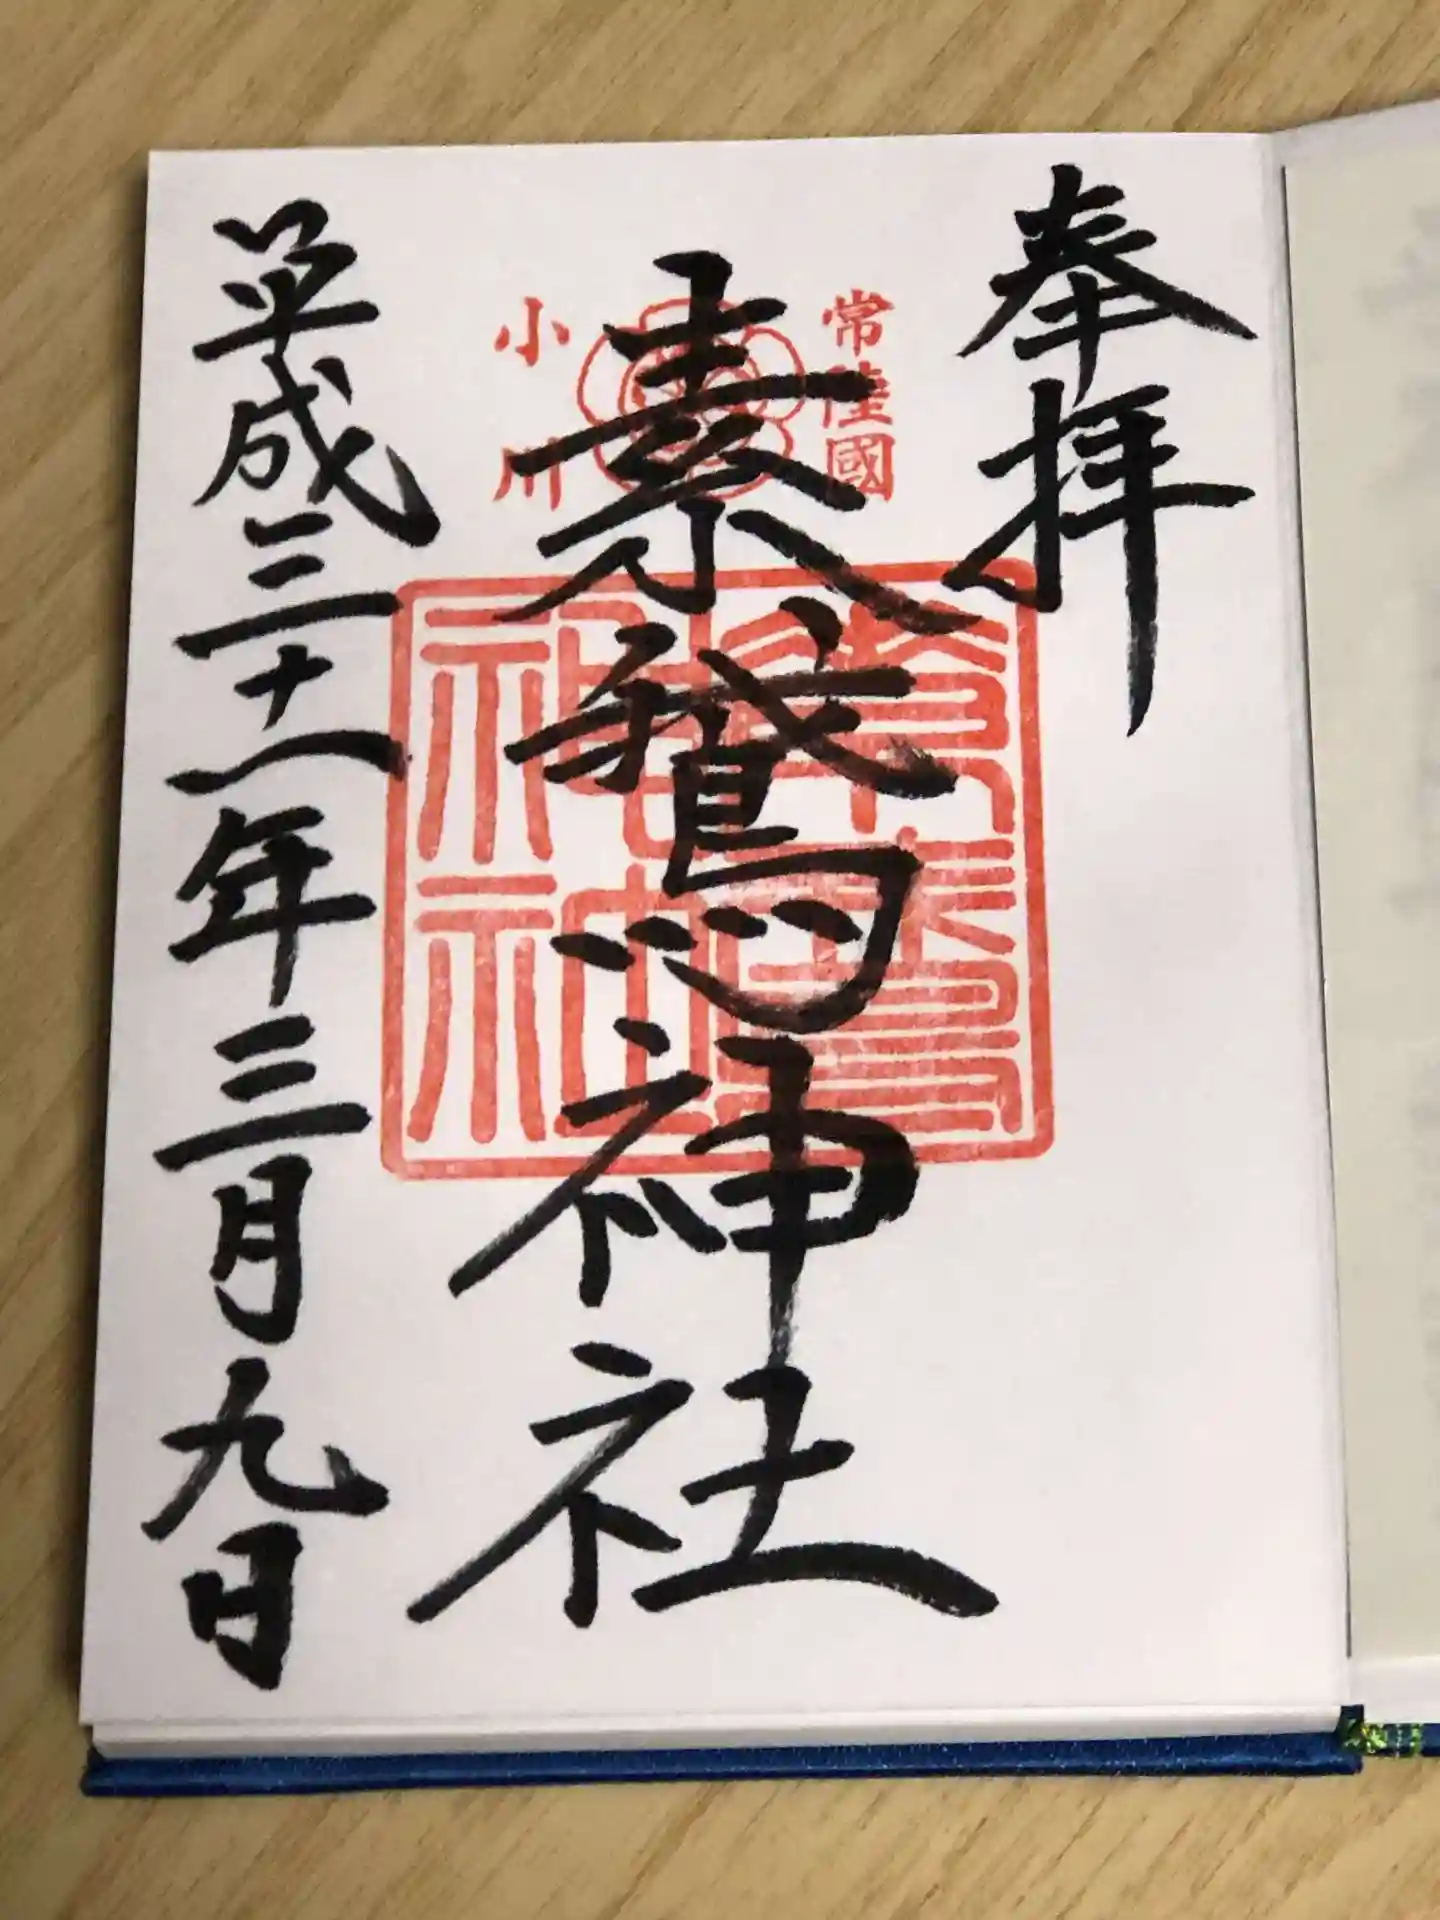 奉拝
常陸國
素鵞神社
小川
素鵞神社
平成三十一年三月九日